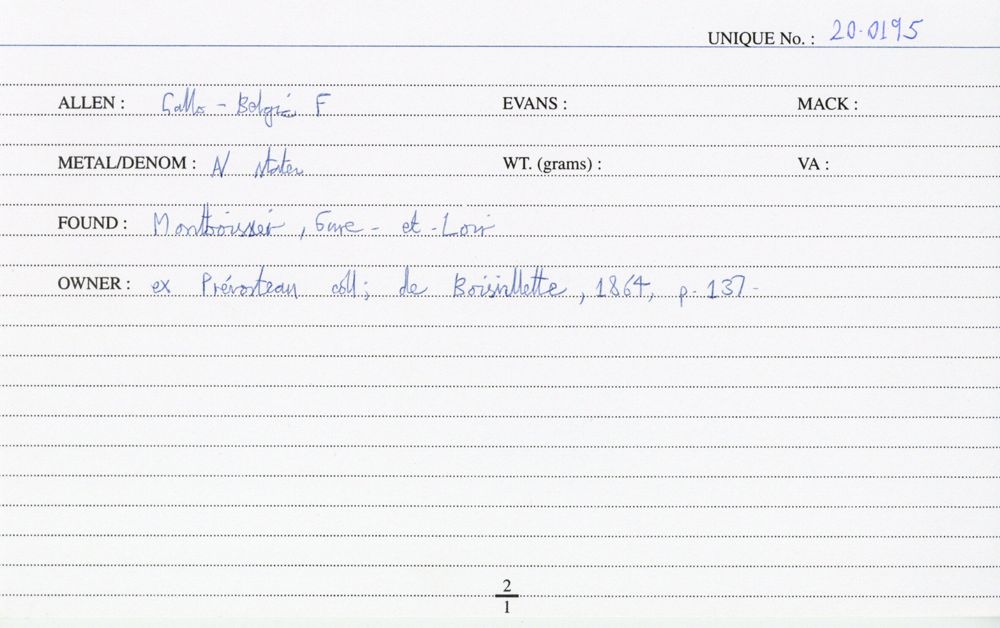 UNIQUE No. : 20.0195
ALLEN : Gallo-Belgic F EVANS : MACK :
METAL/DENOM : AV stater WT. (grams) : VA :
FOUND : Montboissier, Eure-et-Loir
OWNER : ex Prévosteau coll; de Boisvillette, 1864, p. 137.
2
1